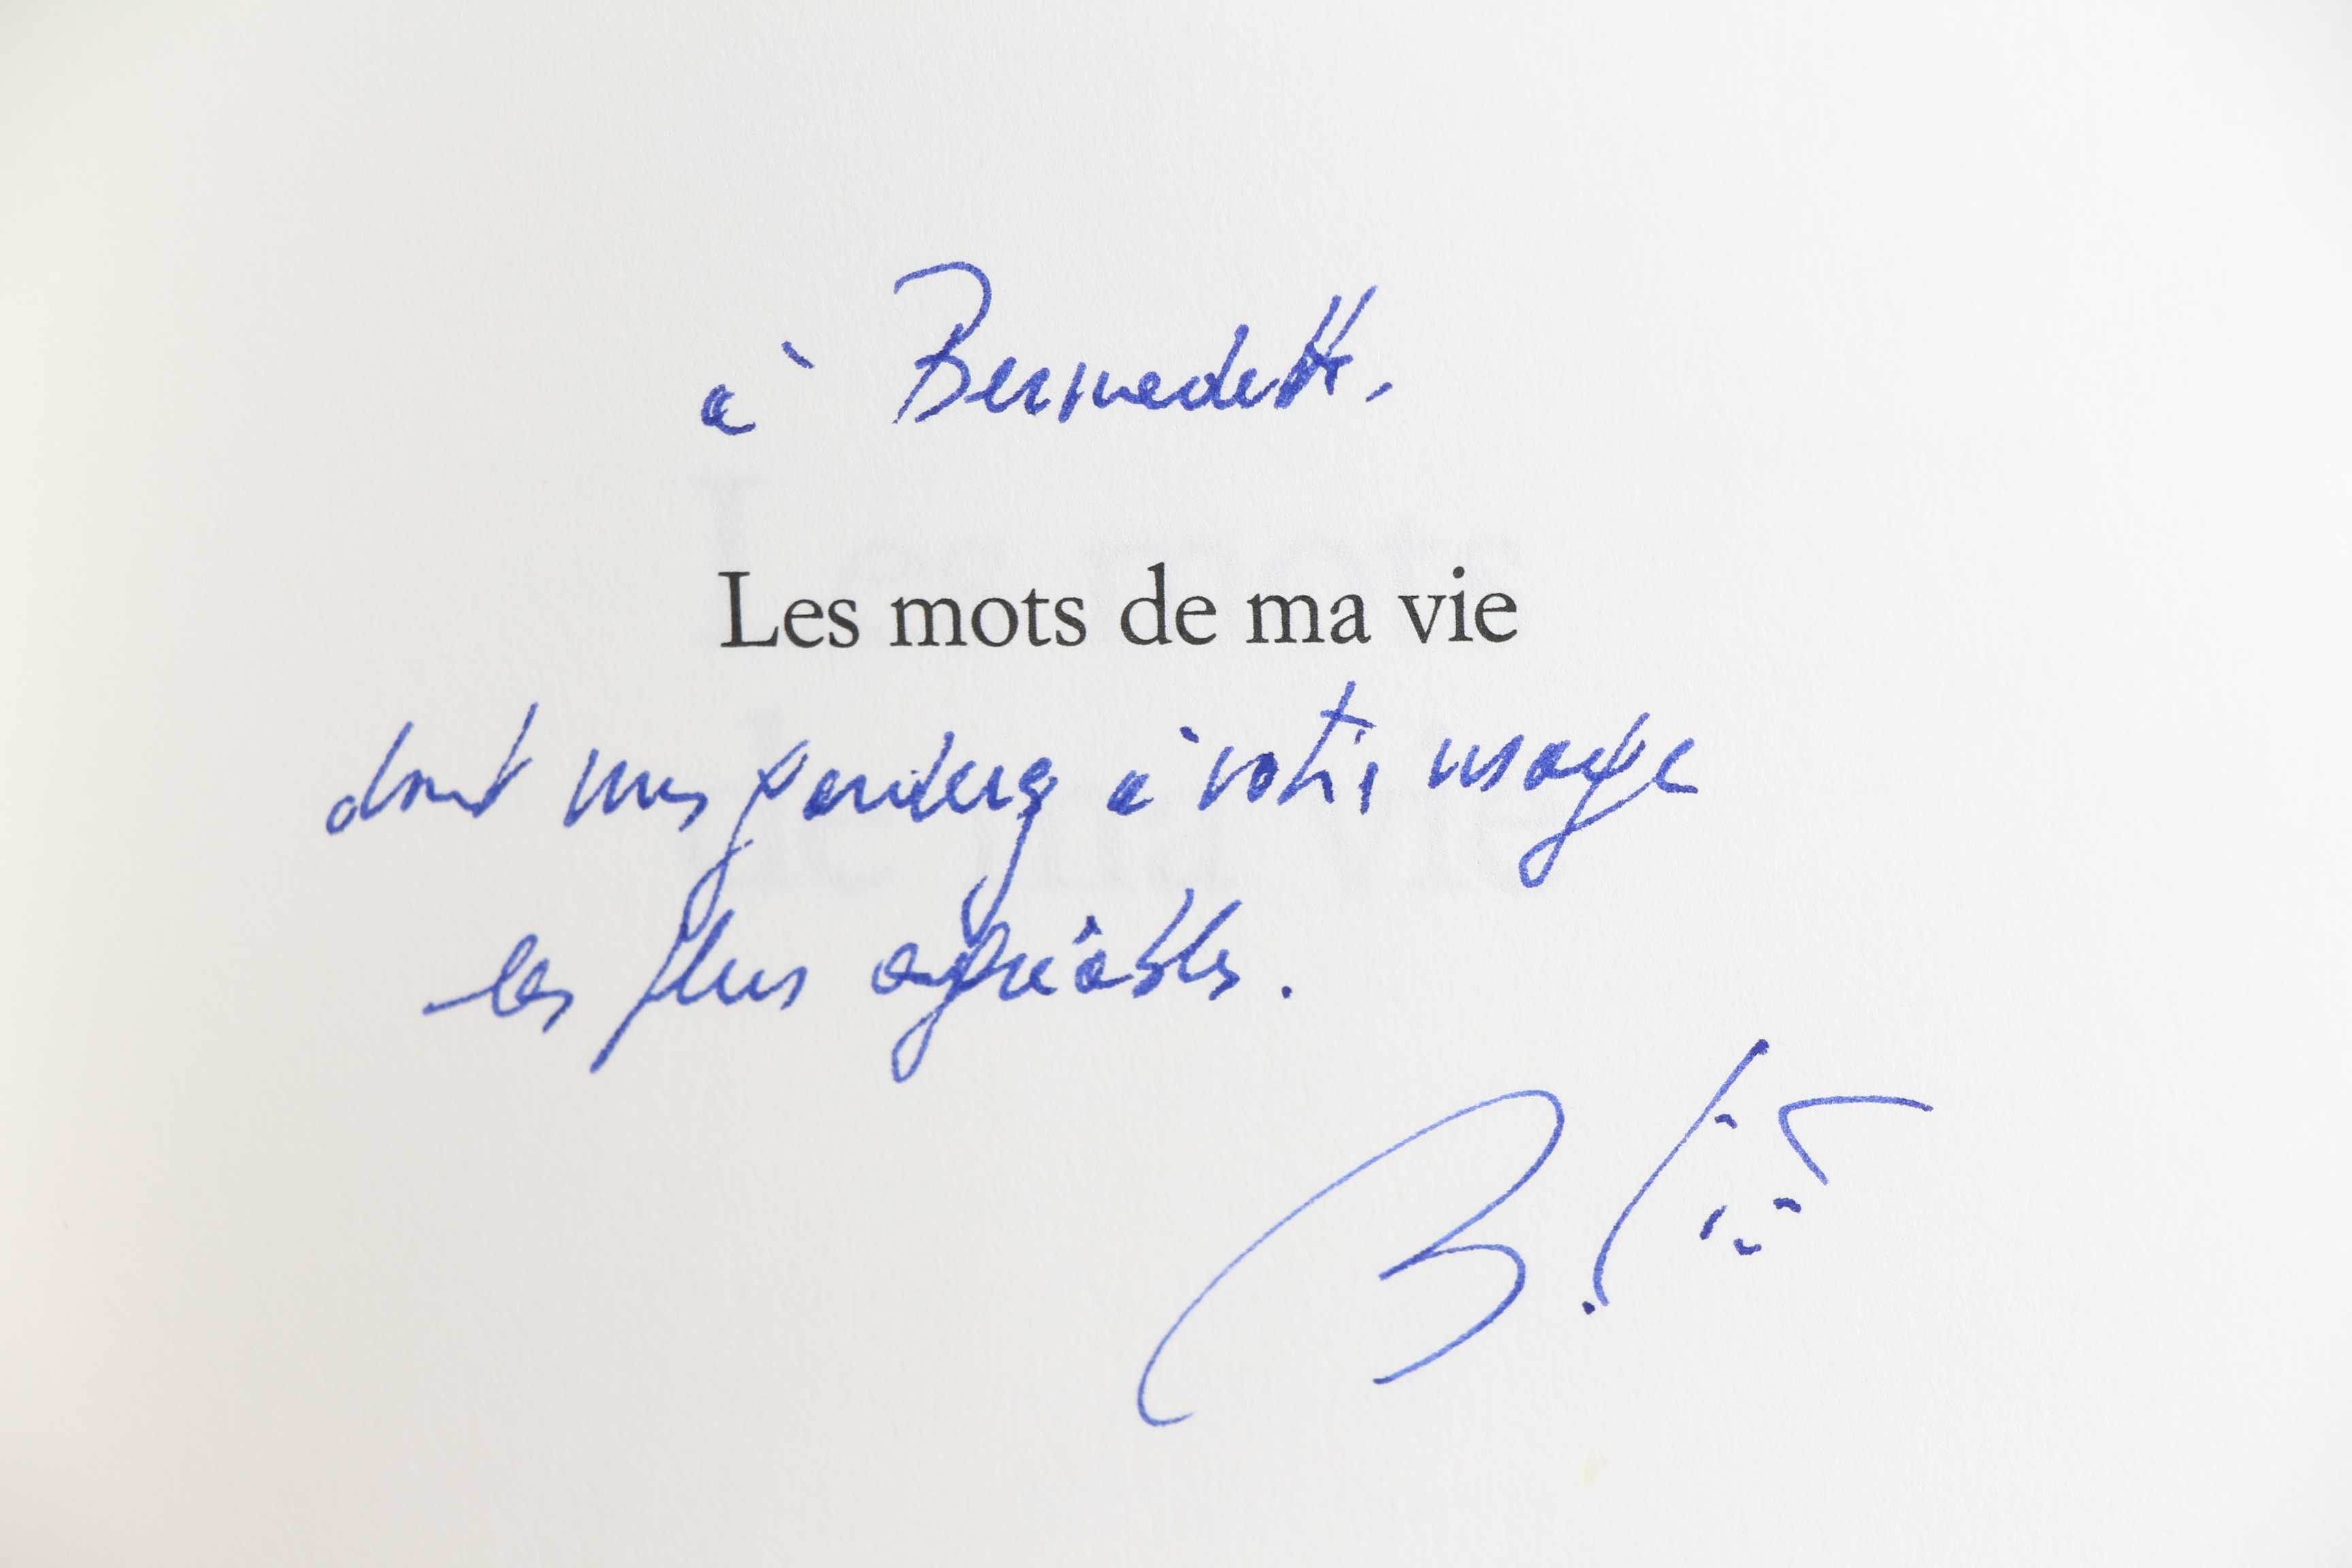 à Bernadette,
Les mots de ma vie
dont vous garderez à votre usage
les plus agréables.